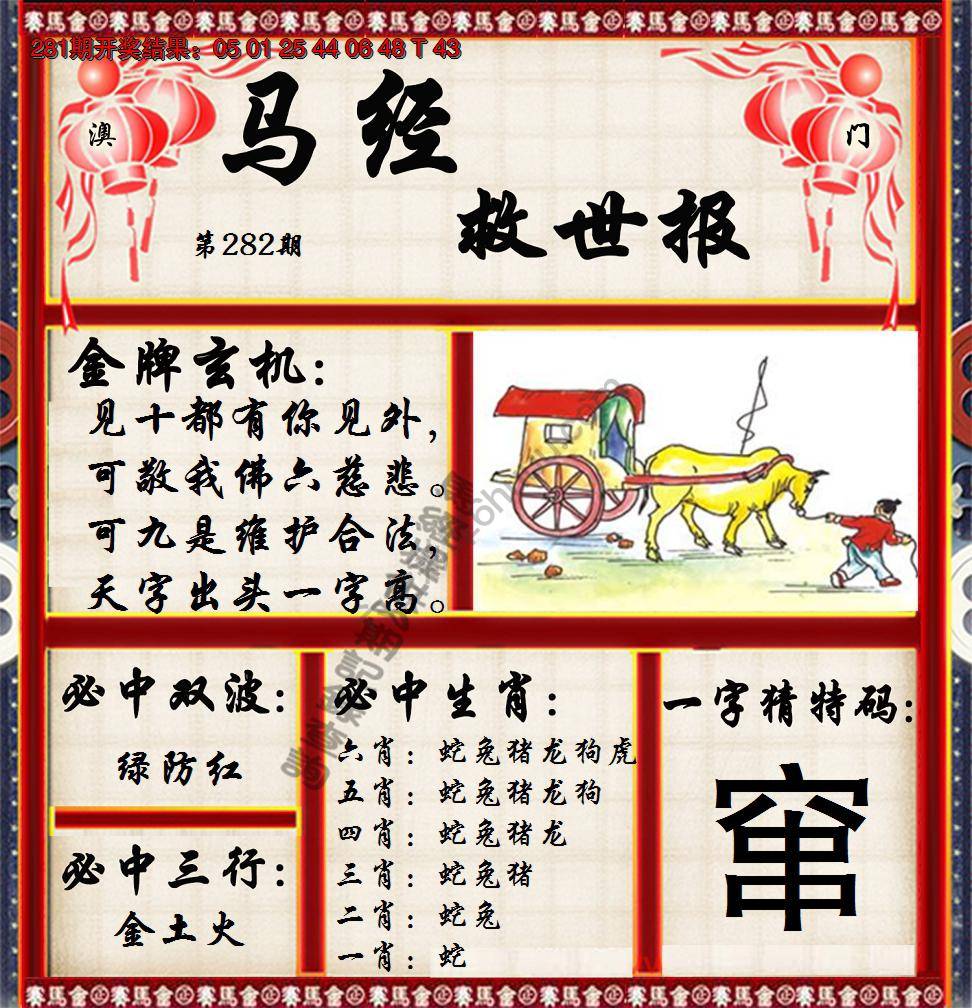 281期开奖结果：05 01 25 44 06 48 T 43
澳
门
马经
救世报
第282期
金牌玄机：
见十都有你见外，
可敬我佛六慈悲。
可九是维护合法，
天字出头一字高。
必中双波：
绿防红
必中三行：
金土火
必中生肖：
六肖：蛇兔猪龙狗虎
五肖：蛇兔猪龙狗
四肖：蛇兔猪龙
三肖：蛇兔猪
二肖：蛇兔
一肖：蛇
一字猜特码：
窜